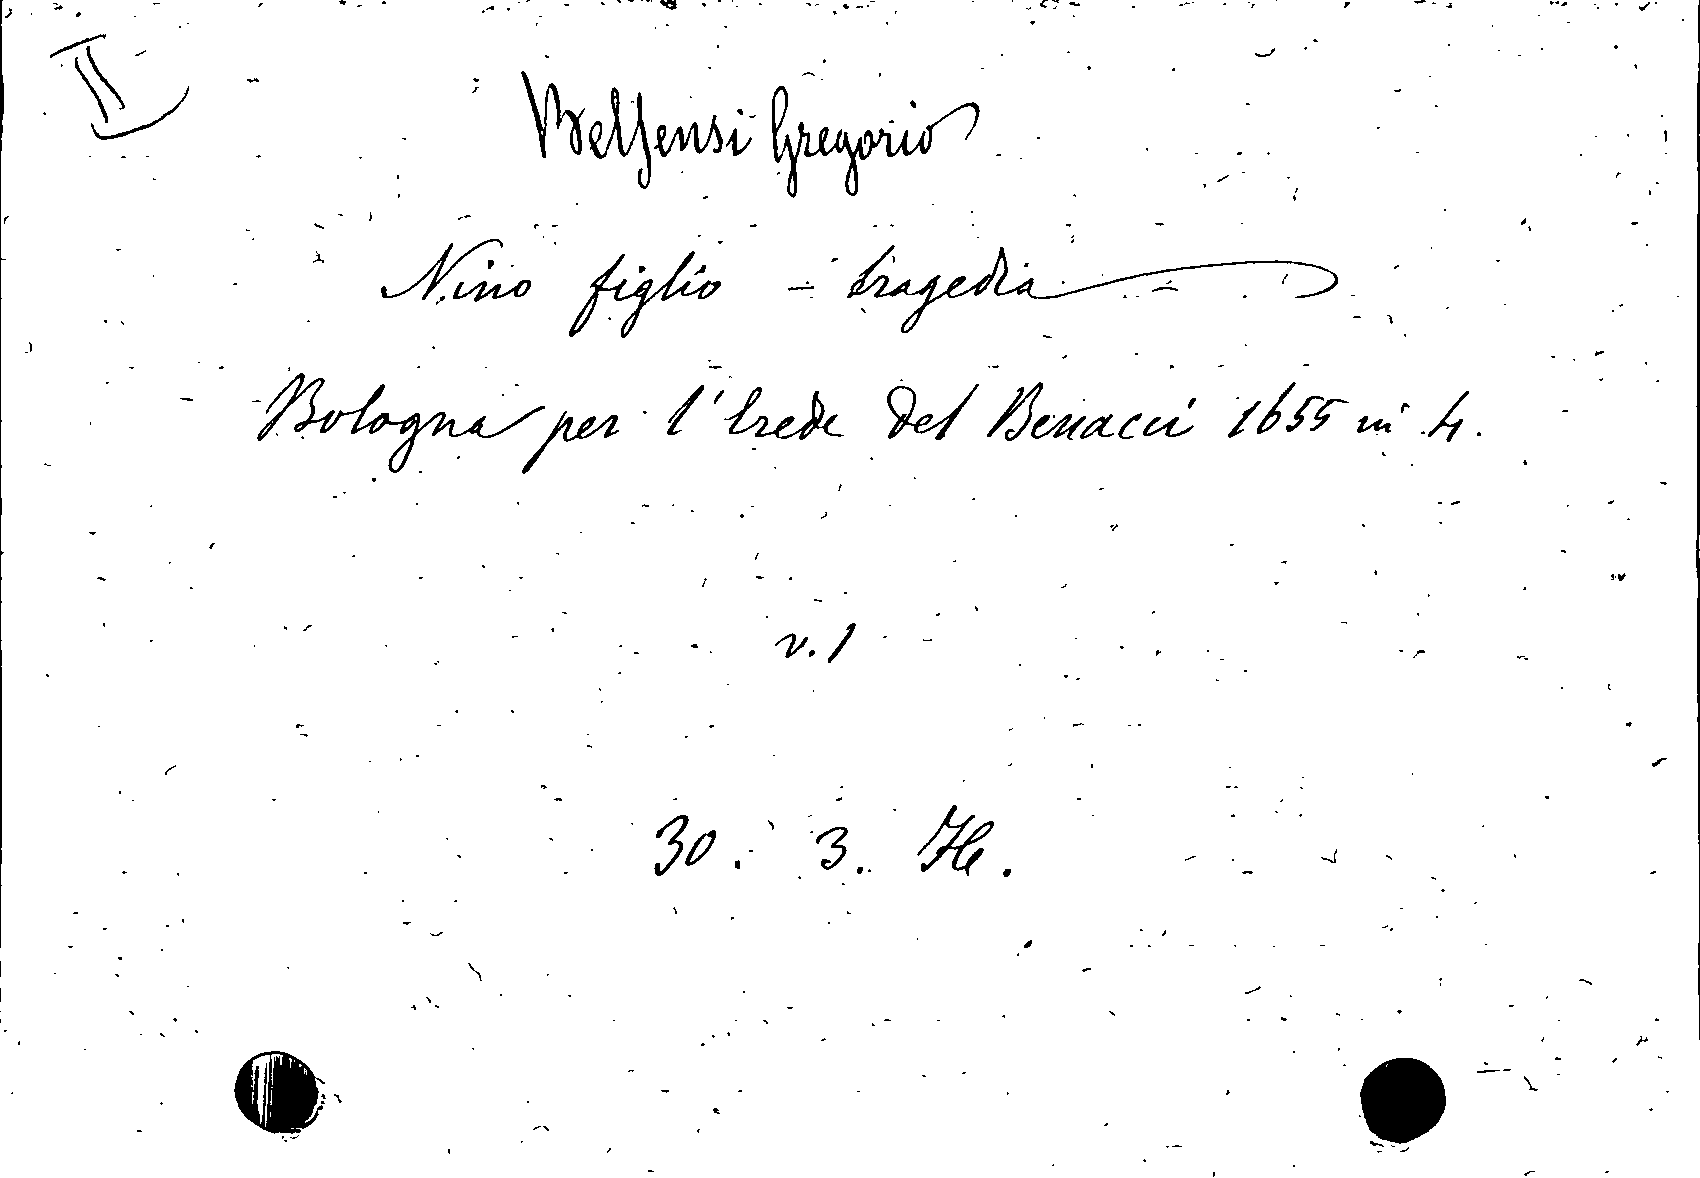 II
Belsensi Gregorio
Nino figlio - tragedia
Bologna per l'Erede del Benacci 1655 in 4.
v. 1
30. 3. H.